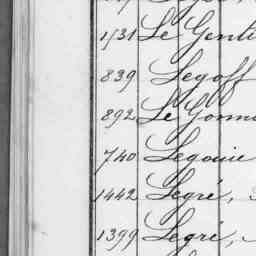 1731 Le Genti
839 Legoff
892 Le Gonni
740 Legouie
1442 Legré,
1399 Legré,